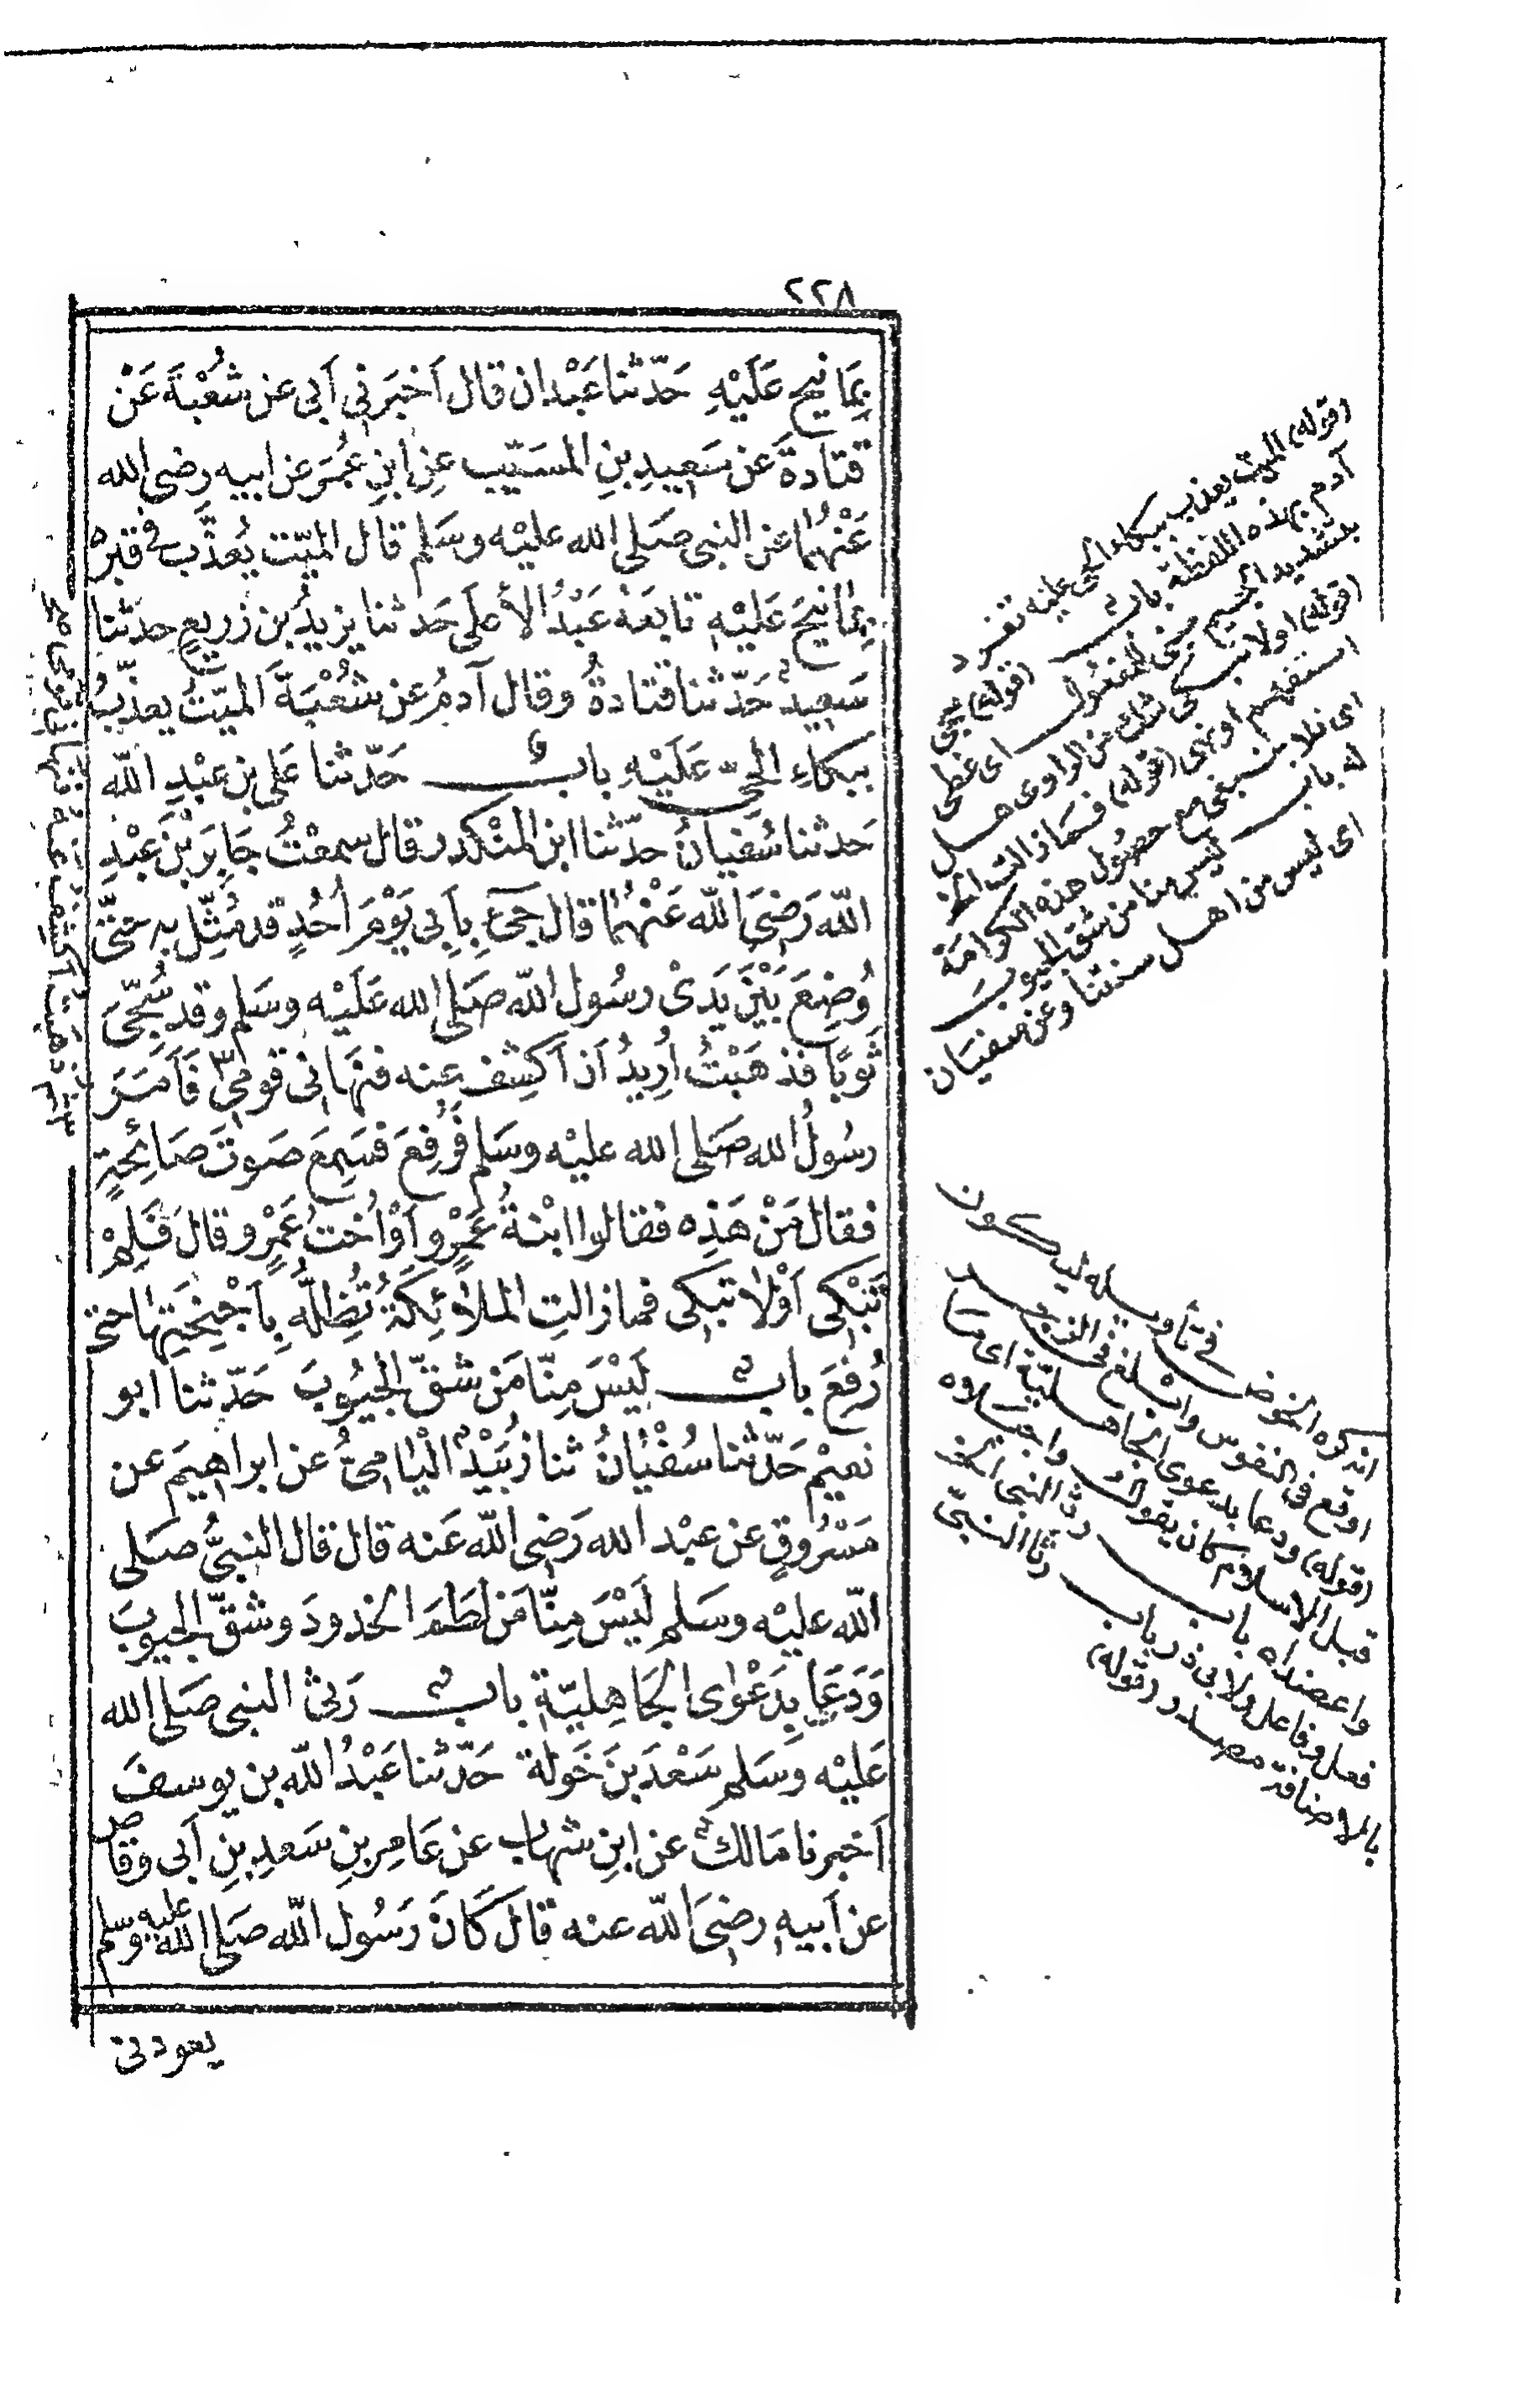 ٢٢٨
بِمَا نِيحَ عَلَيْهِ حَدّثنا عَبْدان قال اَخبَرَنِي اَبِي عن شُعْبَةَ عَنْ
قتادةَ عَن سَعِيدِ بنِ المسَيّب عن ابنِ عُمَرَ عن ابيه رضى الله
عَنْهُما عن النبى صَلى الله عليْه وسَلم قال الميّت يُعذَّب في قبره
بِمَا نِيحَ عَلَيْهِ تابَعَهُ عَبْدُ الأعلى حَدثنا يزيدُ بن زريعٍ حدثنا
سَعِيدٌ حَدّثنا قتادةُ وقال آدمُ عن شُعْبَةَ الميّتُ يعذَّبُ
ببكاءِ الحى عَلَيْهِ باب حَدّثنا على بن عبْدِ الله
حَدثنا سُفيانُ حدّثنا ابن المنْكدر قال سمعْتُ جَابِرَ بْنَ عَبْدِ
الله رَضِىَ الله عَنْهُما قال جِىءَ بِاَبِى يَوْمَ اُحُدٍ قد مُثِّل به حَتَّى
وُضِعَ بَيْنَ يَدَىْ رسُول الله صَلى الله عَلَيْه وسَلم وقد سُجِّىَ
ثَوبًا فذهَبْتُ اُرِيدُ اَن اَكشِف عنه فنهَانِى قومِى فَاَمَرَ
رسُولُ الله صَلى الله عليْه وسَلم فَرُفِعَ فسَمِعَ صَوتَ صَائِحَةٍ
فقال مَنْ هَذِه فقالوا ابْنةُ عَمْرٍو اَوْ اُختُ عَمْرٍو قال فَلِمَ
تَبْكِى اَوْلا تبكِى فما زالتِ الملائِكَةُ تُظِلُّهُ بِاَجْنِحَتِهَا حتى
رُفِعَ باب لَيْسَ مِنّا مَن شقّ الجُيُوبَ حَدّثنا ابو
نعيمْ حَدّثنا سُفْيَانُ ثنا زُبَيْدٌ الْيَامِىُّ عن ابراهِيمَ عن
مَسْرُوقٍ عن عبْد الله رَضِى الله عَنه قال قال النبىُّ صَلى
الله عليْه وسَلم لَيْسَ مِنّا مَن لطمَ الخدودَ وشقّ الجيوبَ
وَدَعَا بِدَعْوَى الجَاهِليّةِ باب رَثى النبى صَلى الله
عَليْه وَسَلم سَعْدَ بنَ خَولة حَدّثنا عَبْدُ الله بن يوسفَ
اَخبرنا مَالكٌ عن ابنِ شهاب عن عَامِر بنِ سَعدِ بنِ اَبى وقاص
عن اَبيهِ رضِىَ الله عنه قال كَانَ رَسُول الله صَلى الله عليه وسلم
يعودنى
(قوله) الميت يعذب ببكاء الحى عليه تفرد
آدم بهذه اللفظة باب (قوله) سجى
بتشديد الجيم مبنى للمفعول اى غطى
(قوله) او لا تبكى شك من الراوى هل
استفهم او نهى (قوله) فما زالت الخ
اى فلا ينبغى مع حصول هذه الكرامة
له باب ليس منا من شق الجيوب
اى ليس من اهل سنتنا وعن سفيان
انه كره الخوض فى تأويله ليكون
اوقع فى النفوس وابلغ فى الزجر
(قوله) ودعا بدعوى الجاهلية اى ما
قبل الاسلام كان يقول واجبلاه
واعضداه باب رثا النبى الخ
فعل وفاعل ولابى ذر باب رثا النبىّ
بالاضافة مصدر (قوله)